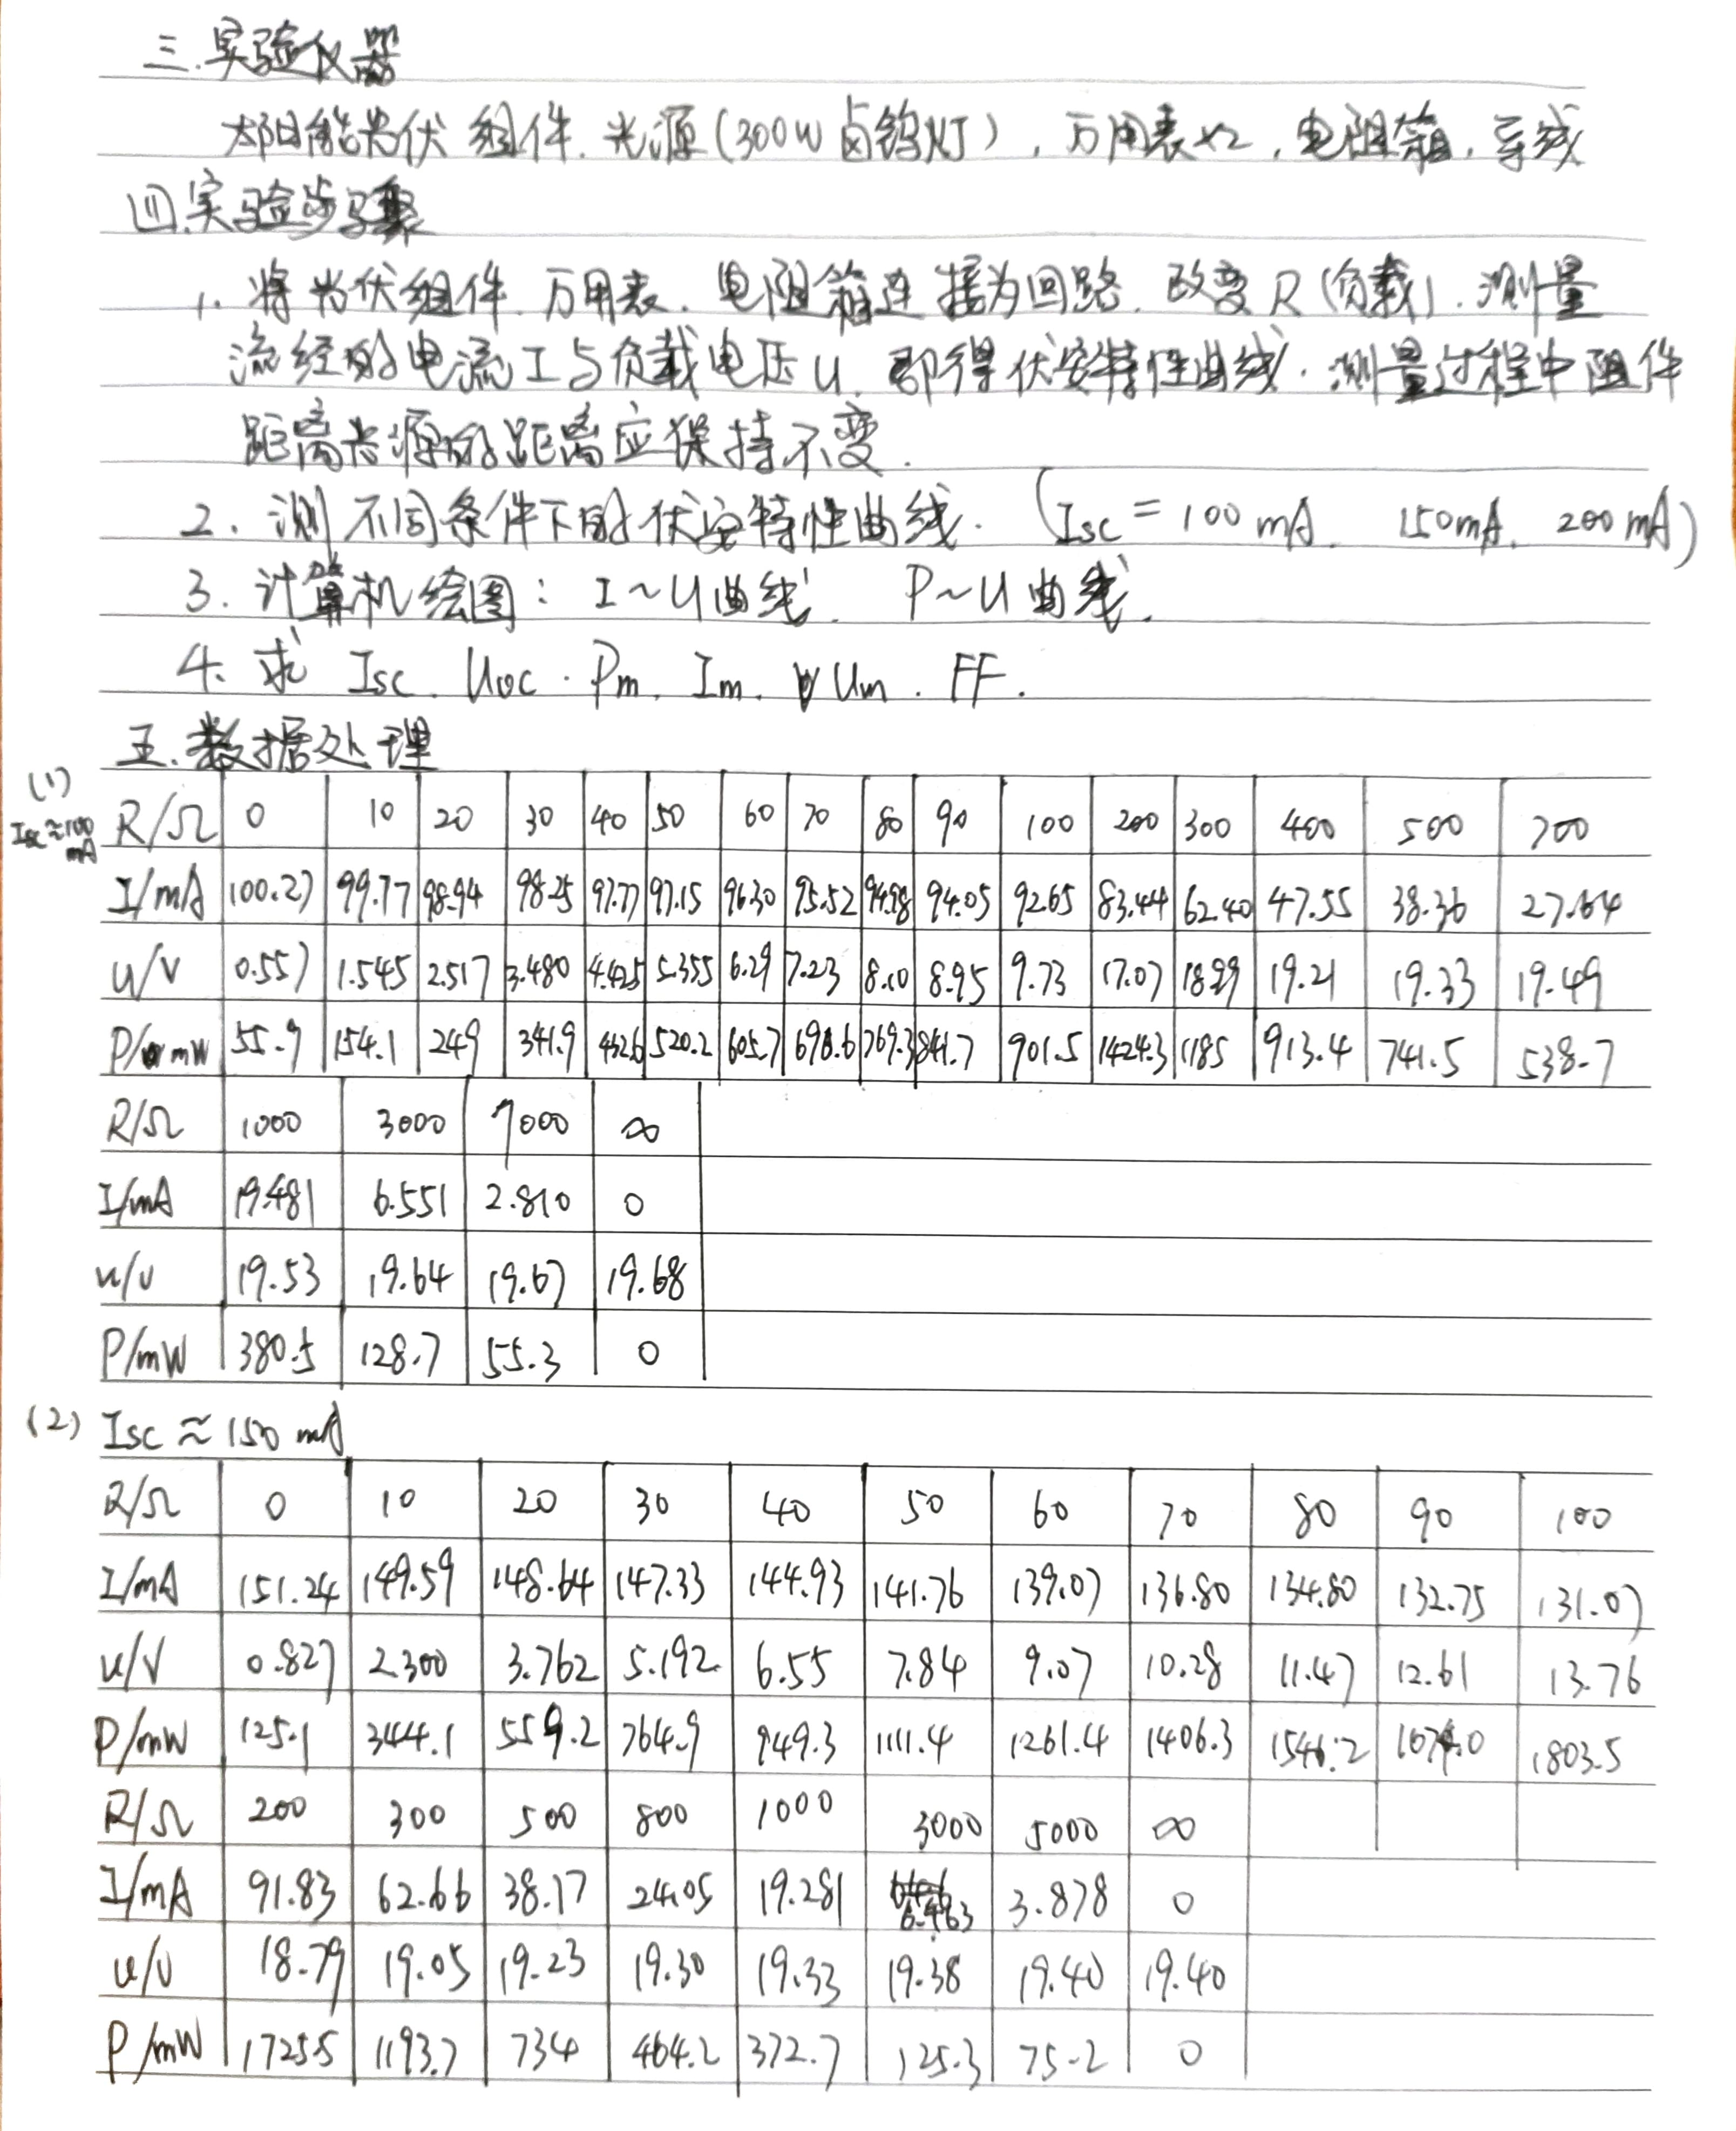 三.实验仪器
太阳能光伏组件.光源(300W卤钨灯),万用表x2,电阻箱.导线
四.实验步骤
1.将光伏组件.万用表.电阻箱连接为回路.改变R(负载).测量
流经的电流I与负载电压U.即得伏安特性曲线.测量过程中阻件
距离光源的距离应保持不变.
2.测不同条件下的伏安特性曲线.(Isc=100mA. 150mA. 200mA)
3.计算机绘图:I~U曲线. P~U曲线.
4.求 Isc.Uoc.Pm.Im.Um.FF.
五.数据处理
(1) Isc≈100mA
R/Ω 0 10 20 30 40 50 60 70 80 90 100 200 300 400 500 700
I/mA 100.27 99.77 98.94 98.25 97.77 97.15 96.30 95.52 94.98 94.05 92.65 83.44 62.40 47.55 38.36 27.64
U/V 0.557 1.545 2.517 3.480 4.425 5.355 6.29 7.23 8.10 8.95 9.73 17.07 18.99 19.21 19.33 19.49
P/mW 55.9 154.1 249 341.9 432.6 520.2 605.7 690.6 769.3 841.7 901.5 1424.3 1185 913.4 741.5 538.7
R/Ω 1000 3000 7000 ∞
I/mA 19.481 6.551 2.810 0
U/V 19.53 19.64 19.67 19.68
P/mW 380.5 128.7 55.3 0
(2) Isc≈150mA
R/Ω 0 10 20 30 40 50 60 70 80 90 100
I/mA 151.24 149.59 148.64 147.33 144.93 141.76 139.07 136.80 134.80 132.75 131.07
U/V 0.827 2.300 3.762 5.192 6.55 7.84 9.07 10.28 11.47 12.61 13.76
P/mW 125.1 344.1 559.2 764.9 949.3 1111.4 1261.4 1406.3 1546.2 1674.0 1803.5
R/Ω 200 300 500 800 1000 3000 5000 ∞
I/mA 91.83 62.66 38.17 24.05 19.281 6.463 3.878 0
U/V 18.79 19.05 19.23 19.30 19.33 19.38 19.40 19.40
P/mW 1725.5 1193.7 734 464.2 372.7 125.3 75.2 0